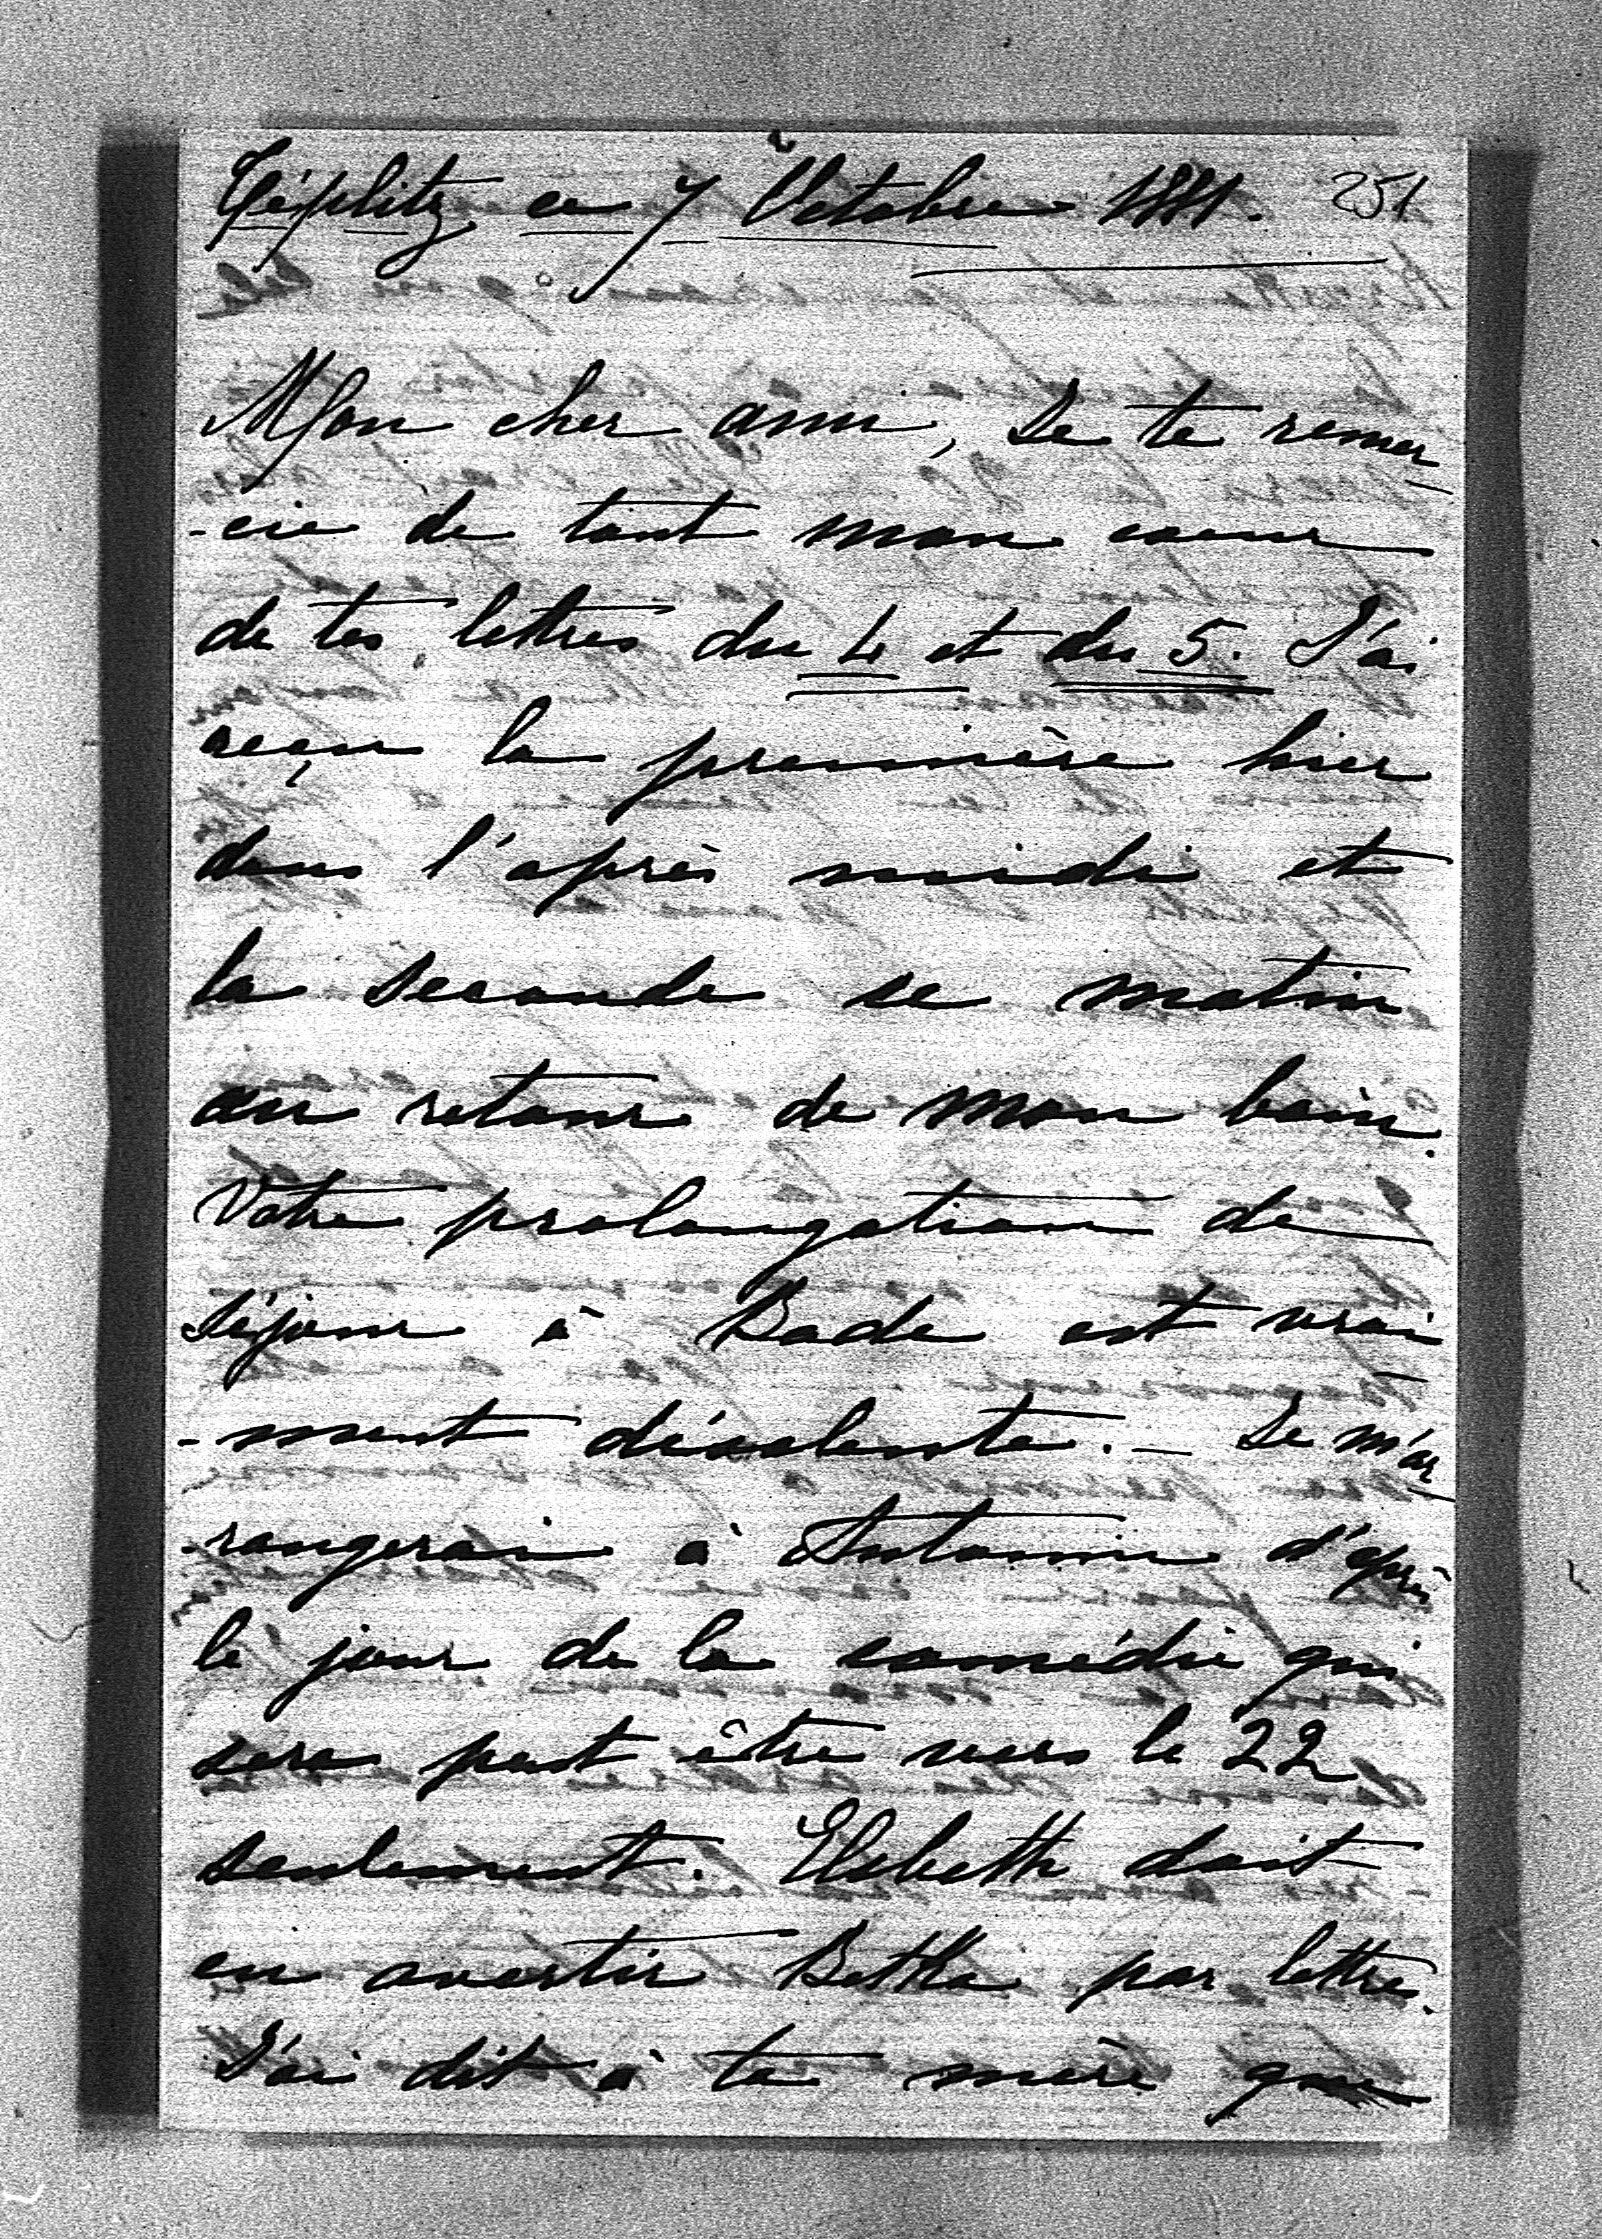 Téplitz ce 7 Octobre 1881. 251
Mon cher ami, Je te remer-
-cie de tout mon coeur
de tes lettres du 4 et du 5. J'ai
reçu la première hier
dans l'après midi et
la seconde ce matin
au retour de mon bain.
Votre prolongation de
séjour à Bade est vrai
-ment désolante. – Je m'ar-
-rangerai à Antonin d'après
le jour de la comédie qui
sera peut être vers le 22
seulement. Elsbeth doit
en avertir Bethka par lettre.
J'ai dit à ta mère que